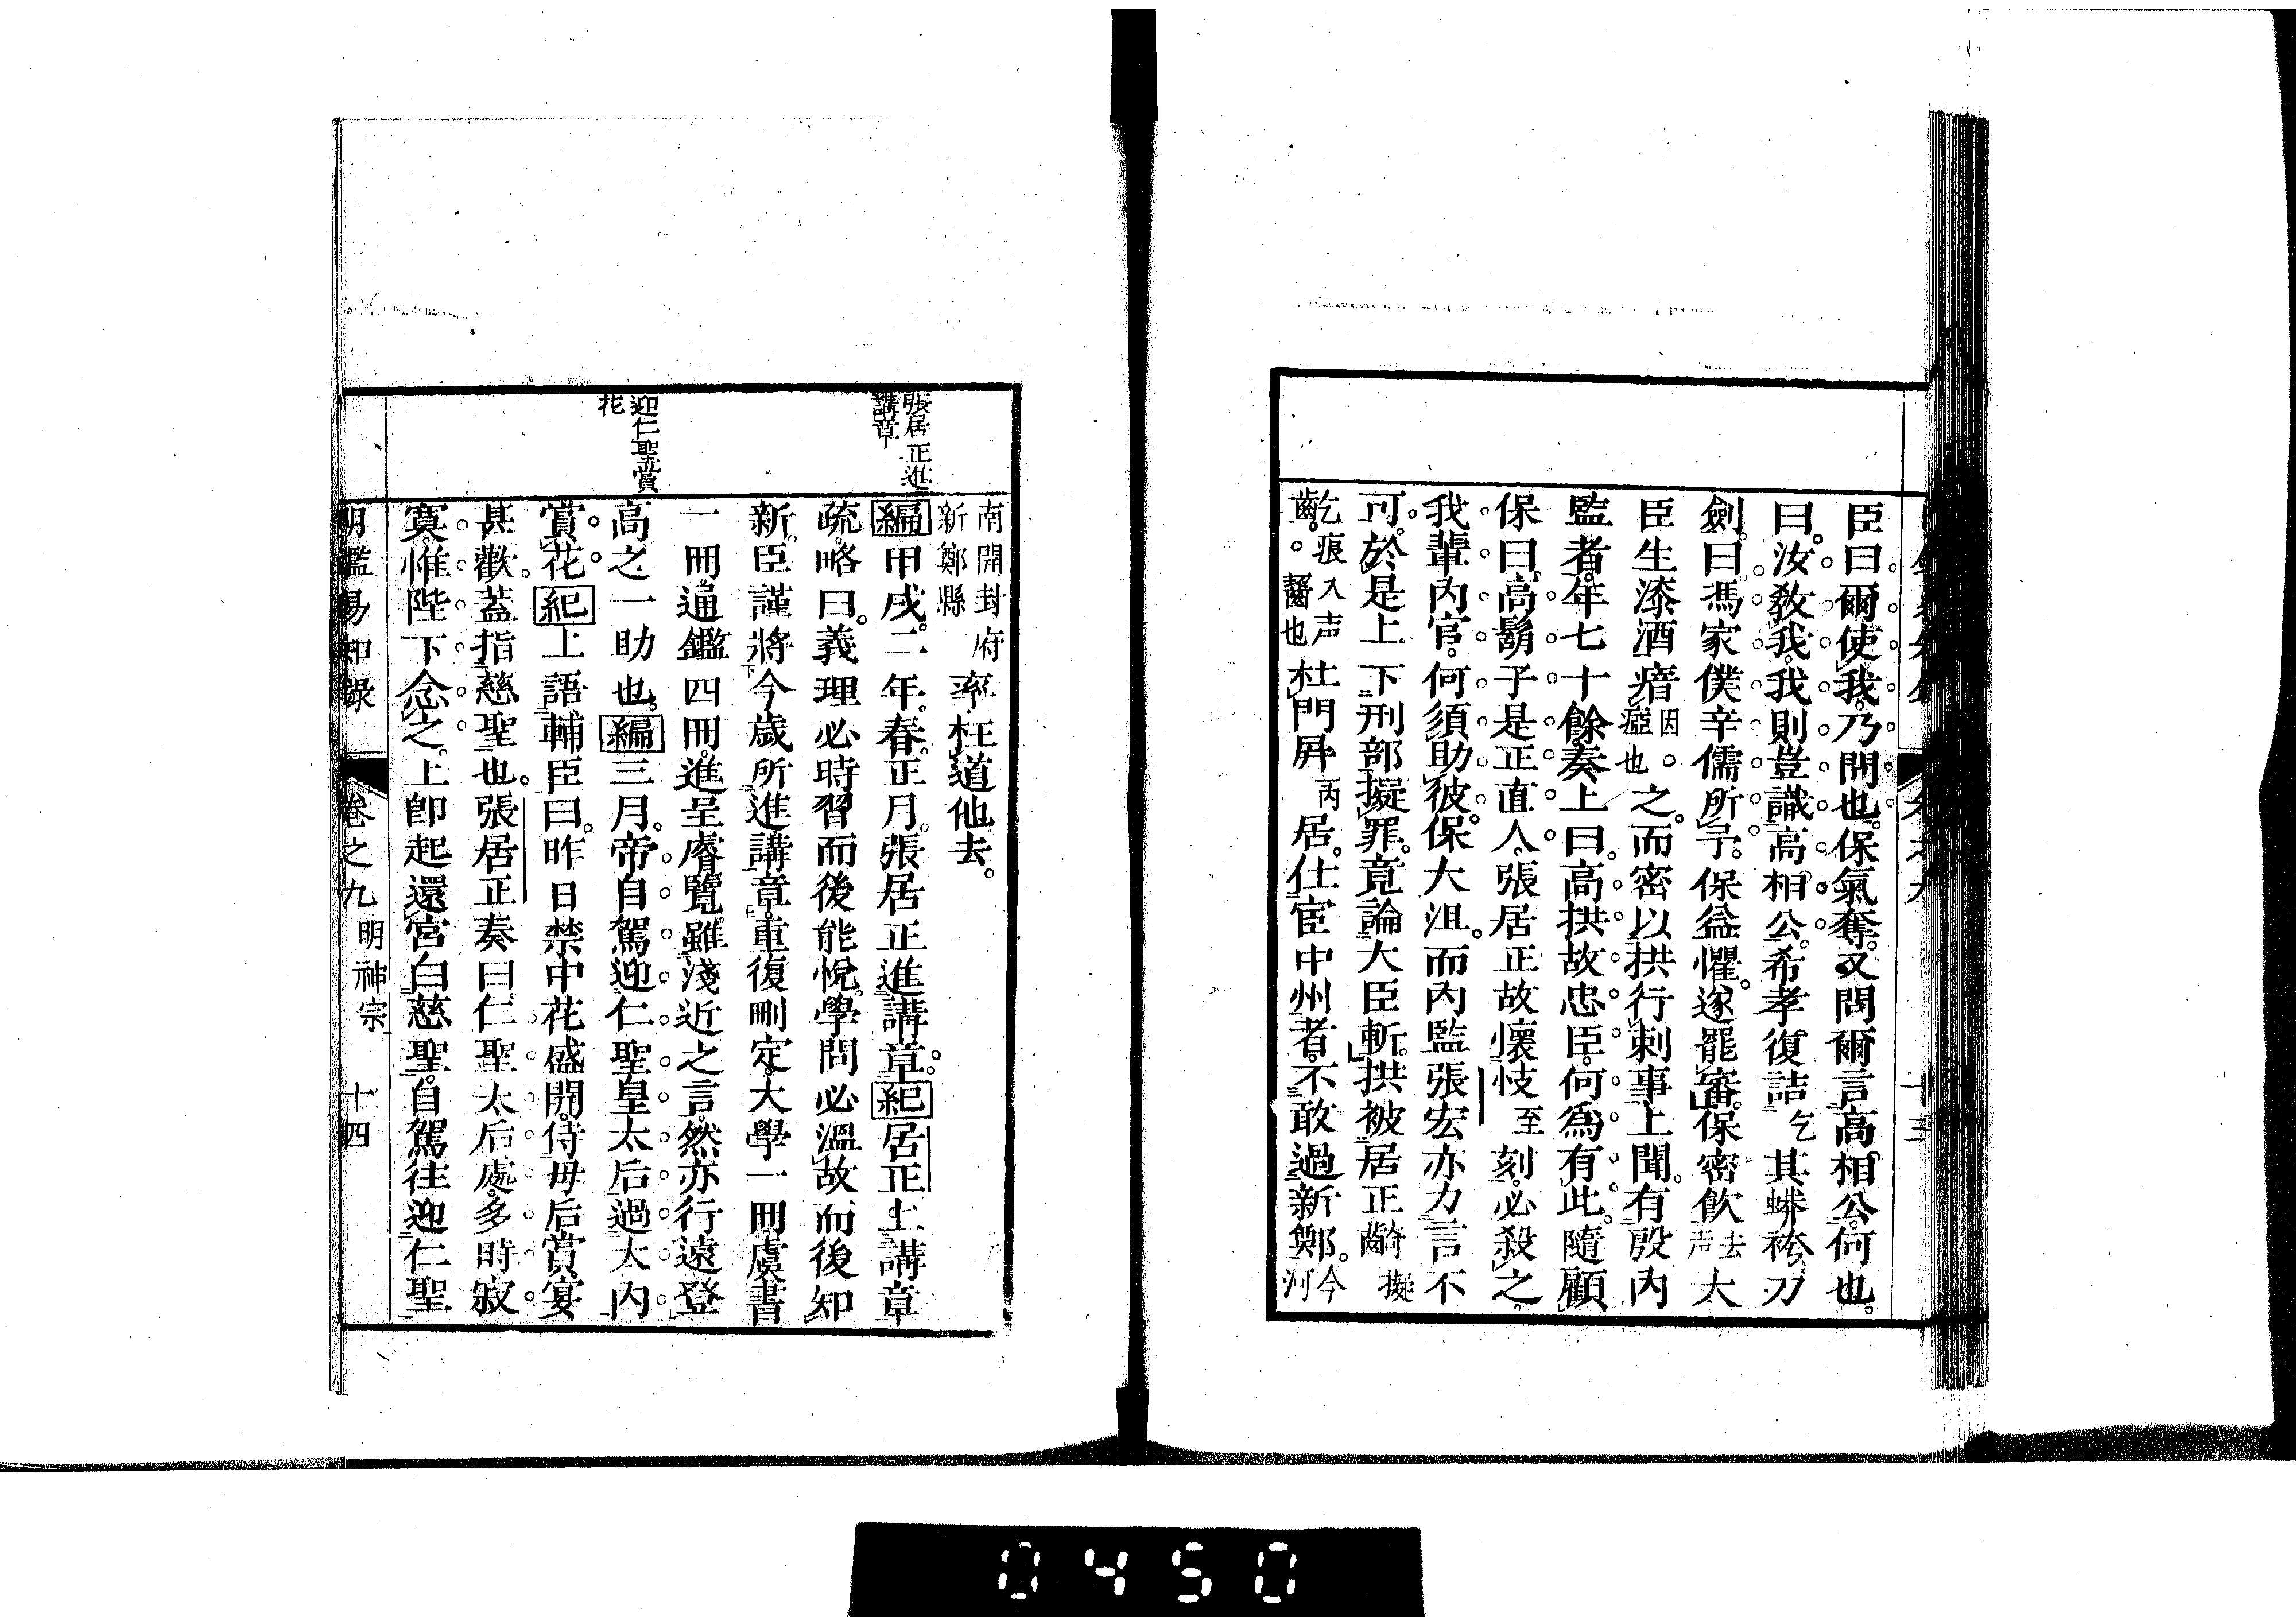 臣曰。爾使我。乃問也。保氣奪。又問爾言高相公。何也。
曰。汝敎我。我則豈識高相公。希孝復詰乞其蟒袴刃
劍。曰。馮家僕辛儒所予。保益懼。遂罷審。保密飮去声大
臣生漆酒瘖因。瘂也之。而密以拱行刺事上聞。有殷內
監者。年七十餘。奏上曰。高拱故忠臣。何爲有此。隨顧
保曰。高鬍子是正直人。張居正故懷忮至刻。必殺之。
我輩內官。何須助彼。保大沮。而內監張宏亦力言不
可。於是上下刑部擬罪。竟論大臣斬。拱被居正齮擬
齕痕入声齒。齧也杜門屛丙居。仕宦中州者。不敢過新鄭。今河
南開封府新鄭縣率枉道他去。
張居正進講章
編甲戌。二年。春。正月。張居正進講章。紀居正上講章
疏。略曰。義理必時習而後能悅。學問必溫故而後知
新。臣謹將今歲所進講章。重復刪定。大學一冊。虞書
一冊。通鑑四冊。進呈睿覽。雖淺近之言。然亦行遠登
高之一助也。編三月。帝自駕迎仁聖皇太后過大內
迎仁聖賞花
賞花。紀上語輔臣曰。昨日禁中花盛開。侍母后賞宴
甚歡。蓋指慈聖也。張居正奏曰。仁聖太后處多時寂
寞。惟陛下念之。上卽起還宮。白慈聖。自駕往迎仁聖
明鑑易知錄 卷之九 明神宗 十四
0450